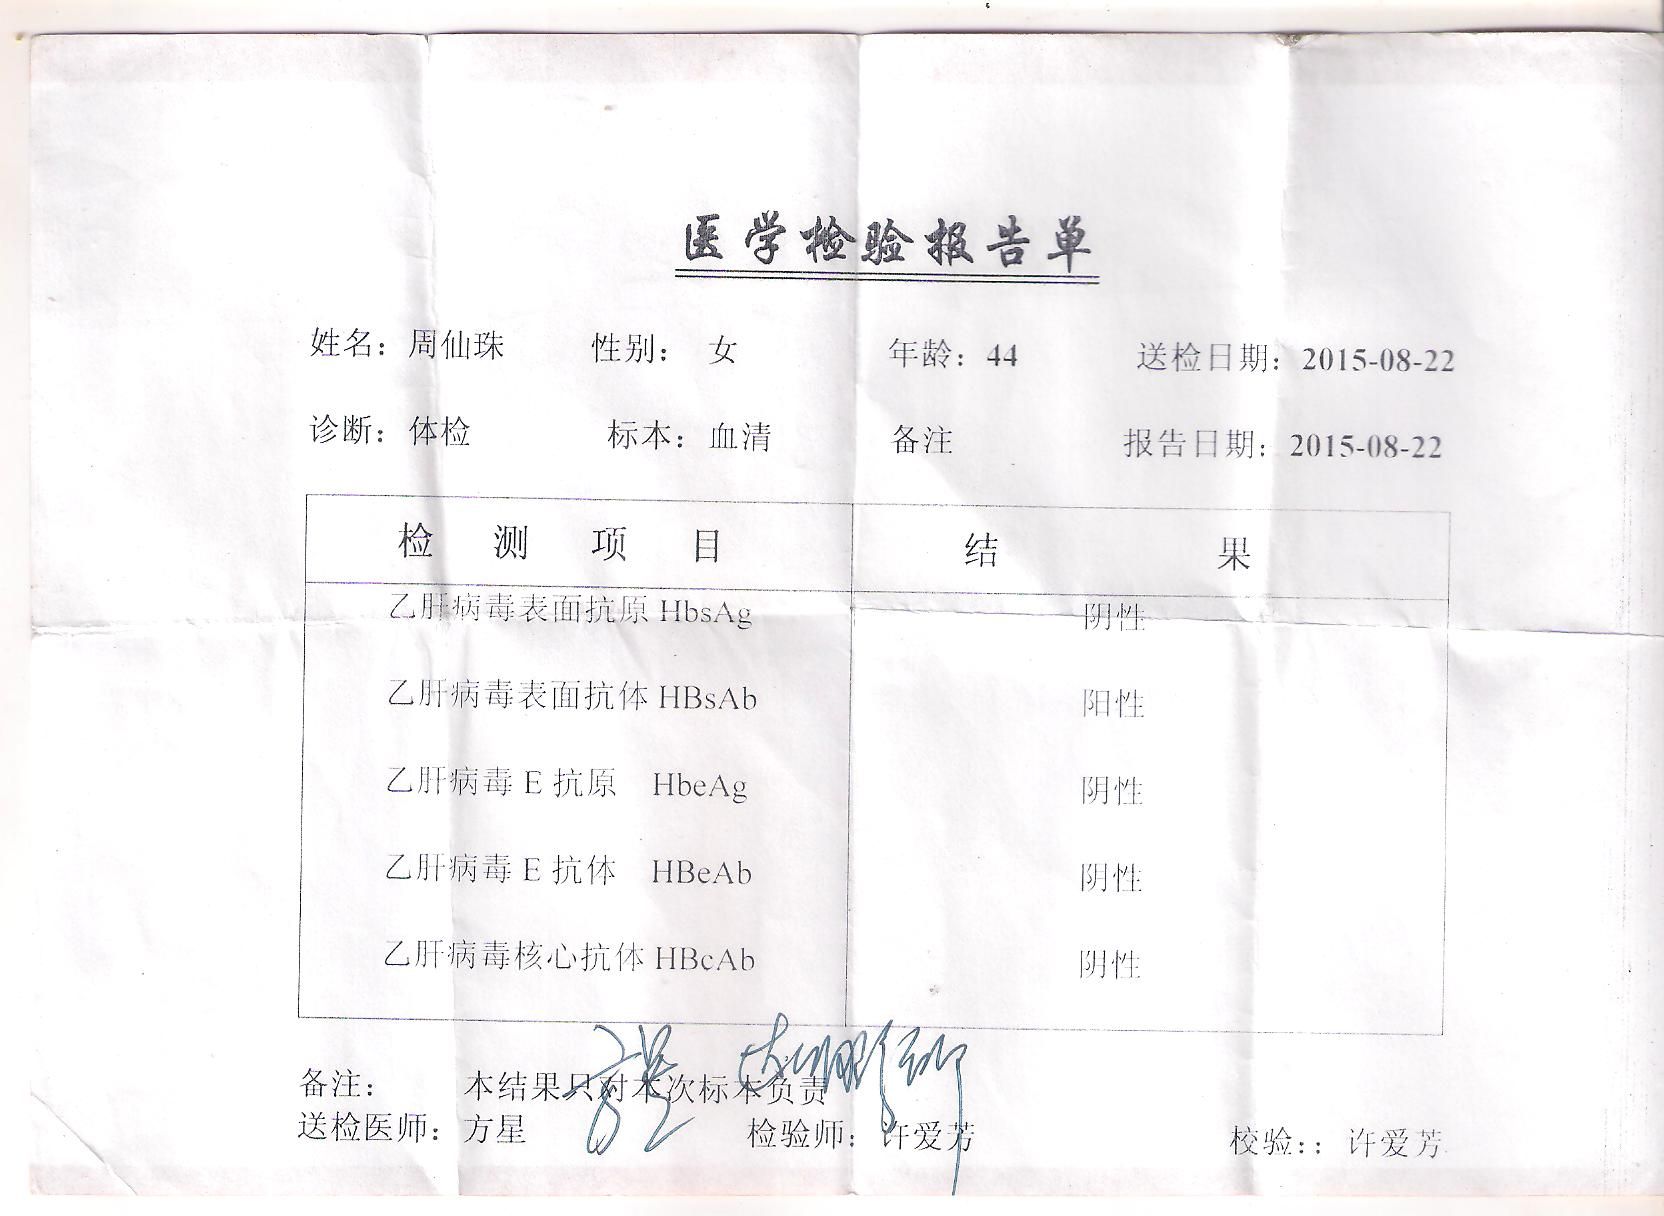 医学检验报告单
姓名：周仙珠 性别： 女 年龄：44 送检日期：2015-08-22
诊断：体检 标本：血清 备注 报告日期：2015-08-22
检 测 项 目 结 果
乙肝病毒表面抗原 HbsAg 阴性
乙肝病毒表面抗体 HBsAb 阳性
乙肝病毒 E 抗原 HbeAg 阴性
乙肝病毒 E 抗体 HBeAb 阴性
乙肝病毒核心抗体 HBcAb 阴性
备注： 本结果只对本次标本负责
送检医师：方星 检验师：许爱芳 校验：：许爱芳